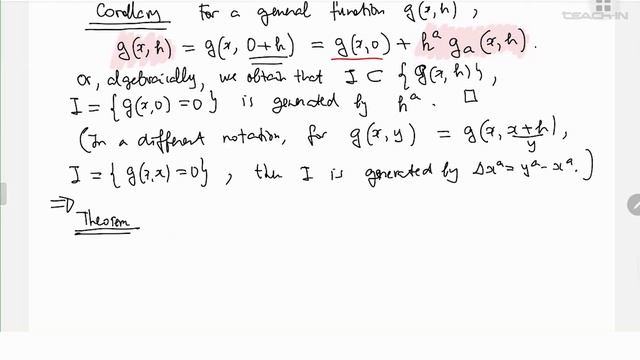 TEACH-IN
Corollary For a general function g(x,h),
g(x,h) = g(x, 0+h) = g(x,0) + hᵃ gₐ(x,h).
or, algebraically, we obtain that I ⊂ {g(x,h)},
I = {g(x,0)=0} is generated by hᵃ. □
(In a different notation, for g(x,y) = g(x, x+h),
y
I = {g(x,x)=0}, then I is generated by Δxᵃ = yᵃ - xᵃ.)
⇒
Theorem